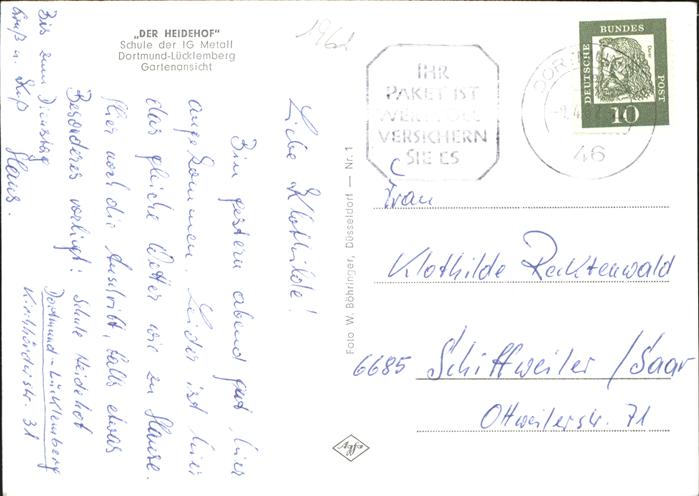 „DER HEIDEHOF"
Schule der IG Metall
Dortmund-Lücklemberg
Gartenansicht
1962
Liebe Klothilde!
Bin gestern abend gut hier
angekommen. Leider ist hier
das gleiche Wetter wie zu Hause.
Hier noch die Anschrift, falls etwas
Besonderes vorliegt: Schule Heidehof
Dortmund-Lücklemberg
Kirchhörderstr. 31
Bis zum Dienstag
Gruß u. Kuß
Hans.
Foto W. Böhringer, Düsseldorf — Nr. 1
IHR
PAKET IST
WERTVOLL
VERSICHERN
SIE ES
46
DEUTSCHE
BUNDES
POST
10
Frau
Klothilde Recktenwald
6685 Schiffweiler/Saar
Ottweilerstr. 71
Agfa